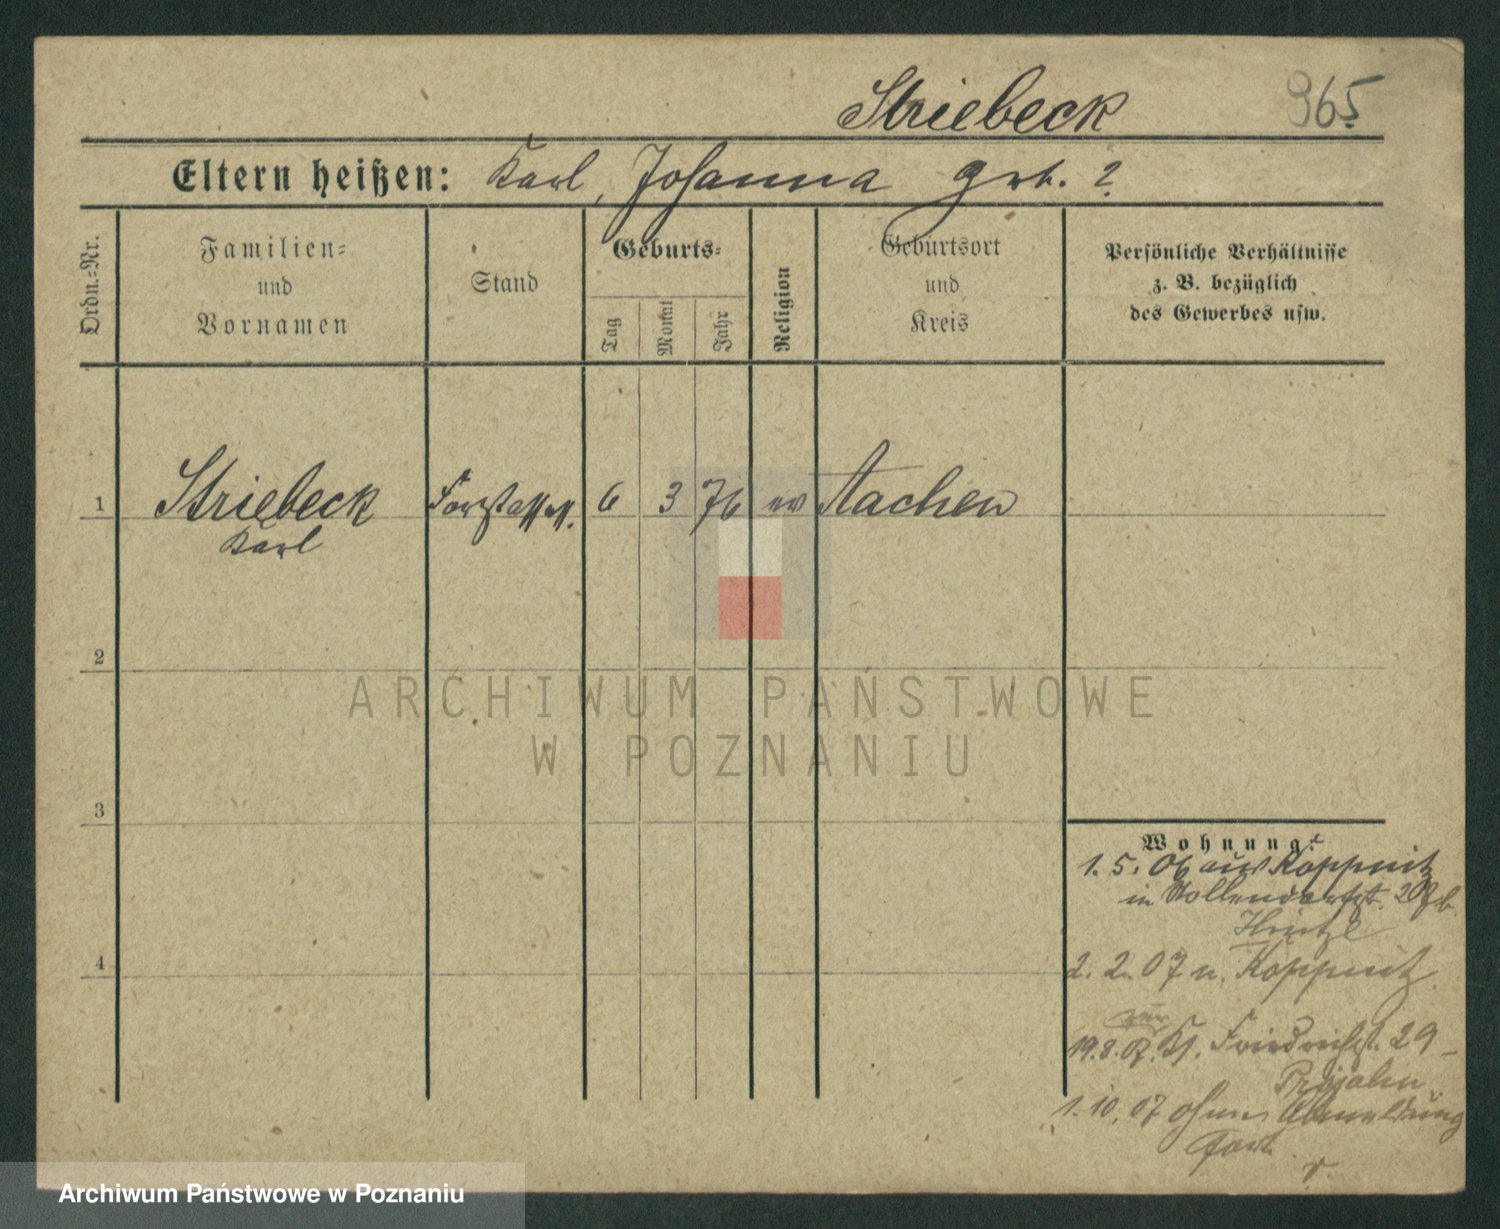 Striebeck 965
Eltern heißen: Karl, Johanna geb. ?
Ordn.-Nr.
Familien-
und
Vornamen
Stand
Geburts-
Tag
Monat
Jahr
Religion
Geburtsort
und
Kreis
Persönliche Verhältnisse
z. B. bezüglich
des Gewerbes usw.
1 Striebeck Forstassess. 6 3 76 ev Aachen
Karl
2
3
4
Wohnung:
1. 5. 06 aus Koppnitz
in Hollendorfst. 20 b.
Hintze
2. 2. 07 n. Koppnitz.
19. 8. Friedrichst. 29
1. 10. 07 ohne Abmeldung
fort.
ARCHIWUM PAŃSTWOWE
W POZNANIU
Archiwum Państwowe w Poznaniu